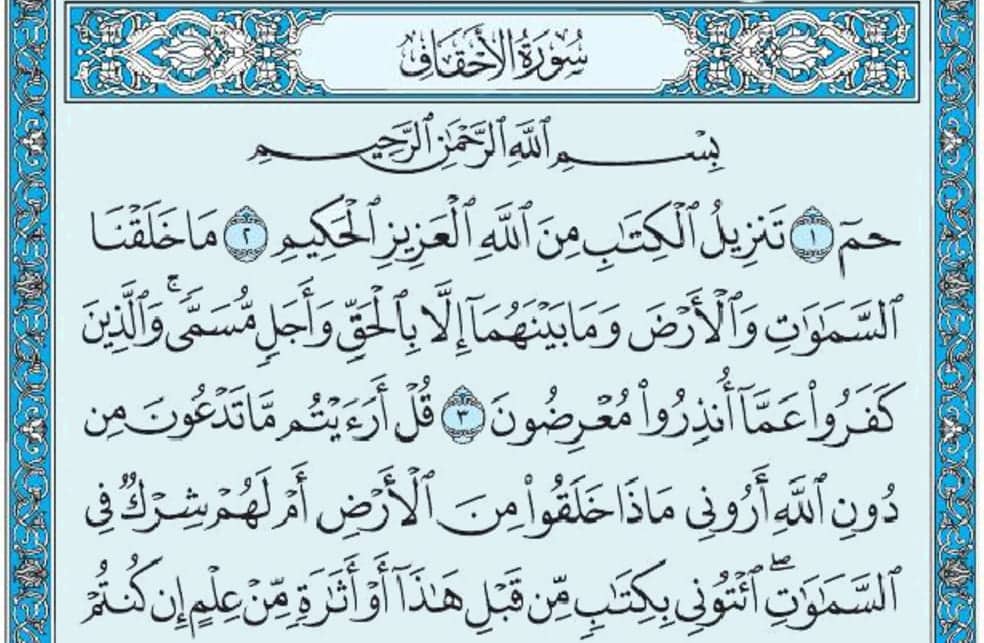 سُورَةُ الأَحْقَافِ
بِسْمِ ٱللَّهِ ٱلرَّحْمَٰنِ ٱلرَّحِيمِ
حمٓ ١ تَنزِيلُ ٱلْكِتَٰبِ مِنَ ٱللَّهِ ٱلْعَزِيزِ ٱلْحَكِيمِ ٢ مَا خَلَقْنَا
ٱلسَّمَٰوَٰتِ وَٱلْأَرْضَ وَمَا بَيْنَهُمَآ إِلَّا بِٱلْحَقِّ وَأَجَلٍ مُّسَمًّى ۚ وَٱلَّذِينَ
كَفَرُوا۟ عَمَّآ أُنذِرُوا۟ مُعْرِضُونَ ٣ قُلْ أَرَءَيْتُم مَّا تَدْعُونَ مِن
دُونِ ٱللَّهِ أَرُونِى مَاذَا خَلَقُوا۟ مِنَ ٱلْأَرْضِ أَمْ لَهُمْ شِرْكٌ فِى
ٱلسَّمَٰوَٰتِ ۖ ٱئْتُونِى بِكِتَٰبٍ مِّن قَبْلِ هَٰذَآ أَوْ أَثَٰرَةٍ مِّنْ عِلْمٍ إِن كُنتُمْ